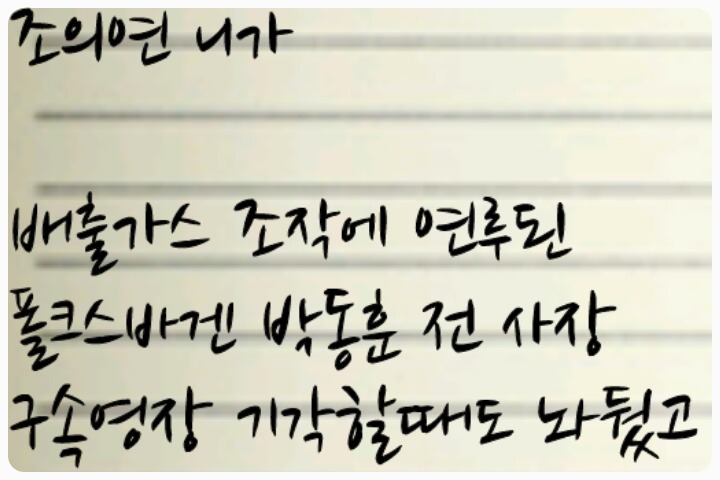 조의연 니가
배출가스 조작에 연루된
폴크스바겐 박동훈 전 사장
구속영장 기각할때도 놔뒀고